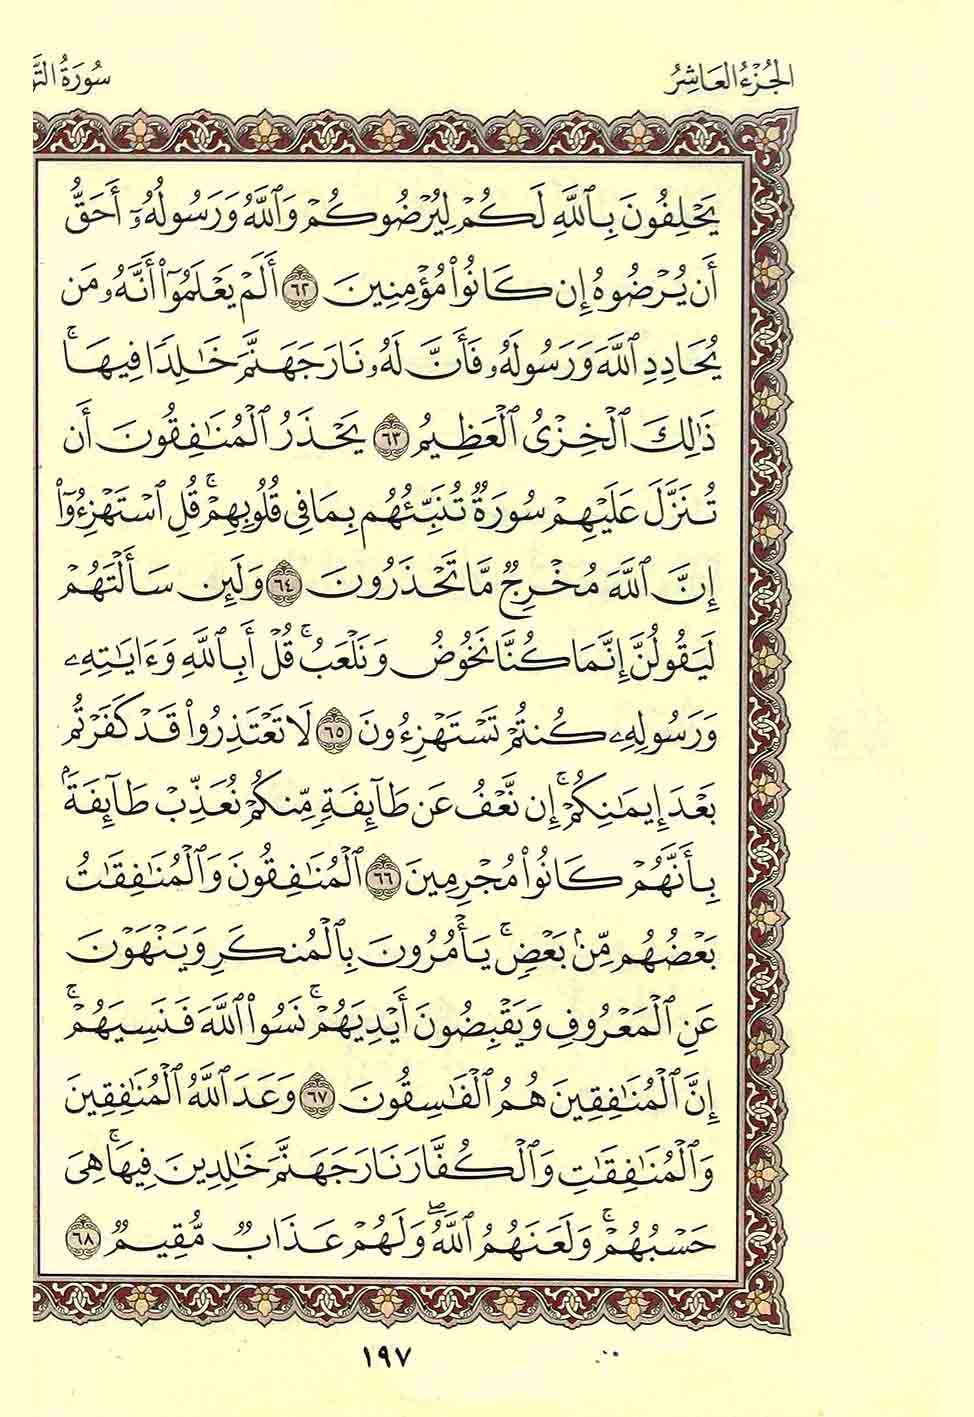 الجُزْءُ العَاشِرُ
سُورَةُ التَّو
يَحْلِفُونَ بِٱللَّهِ لَكُمْ لِيُرْضُوكُمْ وَٱللَّهُ وَرَسُولُهُۥٓ أَحَقُّ
أَن يُرْضُوهُ إِن كَانُوا۟ مُؤْمِنِينَ ٦٢ أَلَمْ يَعْلَمُوٓا۟ أَنَّهُۥ مَن
يُحَادِدِ ٱللَّهَ وَرَسُولَهُۥ فَأَنَّ لَهُۥ نَارَ جَهَنَّمَ خَـٰلِدًا فِيهَا ۚ
ذَٰلِكَ ٱلْخِزْىُ ٱلْعَظِيمُ ٦٣ يَحْذَرُ ٱلْمُنَـٰفِقُونَ أَن
تُنَزَّلَ عَلَيْهِمْ سُورَةٌ تُنَبِّئُهُم بِمَا فِى قُلُوبِهِمْ ۚ قُلِ ٱسْتَهْزِءُوٓا۟
إِنَّ ٱللَّهَ مُخْرِجٌ مَّا تَحْذَرُونَ ٦٤ وَلَئِن سَأَلْتَهُمْ
لَيَقُولُنَّ إِنَّمَا كُنَّا نَخُوضُ وَنَلْعَبُ ۚ قُلْ أَبِٱللَّهِ وَءَايَـٰتِهِۦ
وَرَسُولِهِۦ كُنتُمْ تَسْتَهْزِءُونَ ٦٥ لَا تَعْتَذِرُوا۟ قَدْ كَفَرْتُم
بَعْدَ إِيمَـٰنِكُمْ ۚ إِن نَّعْفُ عَن طَآئِفَةٍ مِّنكُمْ نُعَذِّبْ طَآئِفَةًۢ
بِأَنَّهُمْ كَانُوا۟ مُجْرِمِينَ ٦٦ ٱلْمُنَـٰفِقُونَ وَٱلْمُنَـٰفِقَـٰتُ
بَعْضُهُم مِّنۢ بَعْضٍ ۚ يَأْمُرُونَ بِٱلْمُنكَرِ وَيَنْهَوْنَ
عَنِ ٱلْمَعْرُوفِ وَيَقْبِضُونَ أَيْدِيَهُمْ ۚ نَسُوا۟ ٱللَّهَ فَنَسِيَهُمْ ۗ
إِنَّ ٱلْمُنَـٰفِقِينَ هُمُ ٱلْفَـٰسِقُونَ ٦٧ وَعَدَ ٱللَّهُ ٱلْمُنَـٰفِقِينَ
وَٱلْمُنَـٰفِقَـٰتِ وَٱلْكُفَّارَ نَارَ جَهَنَّمَ خَـٰلِدِينَ فِيهَا ۚ هِىَ
حَسْبُهُمْ ۚ وَلَعَنَهُمُ ٱللَّهُ ۖ وَلَهُمْ عَذَابٌ مُّقِيمٌ ٦٨
١٩٧